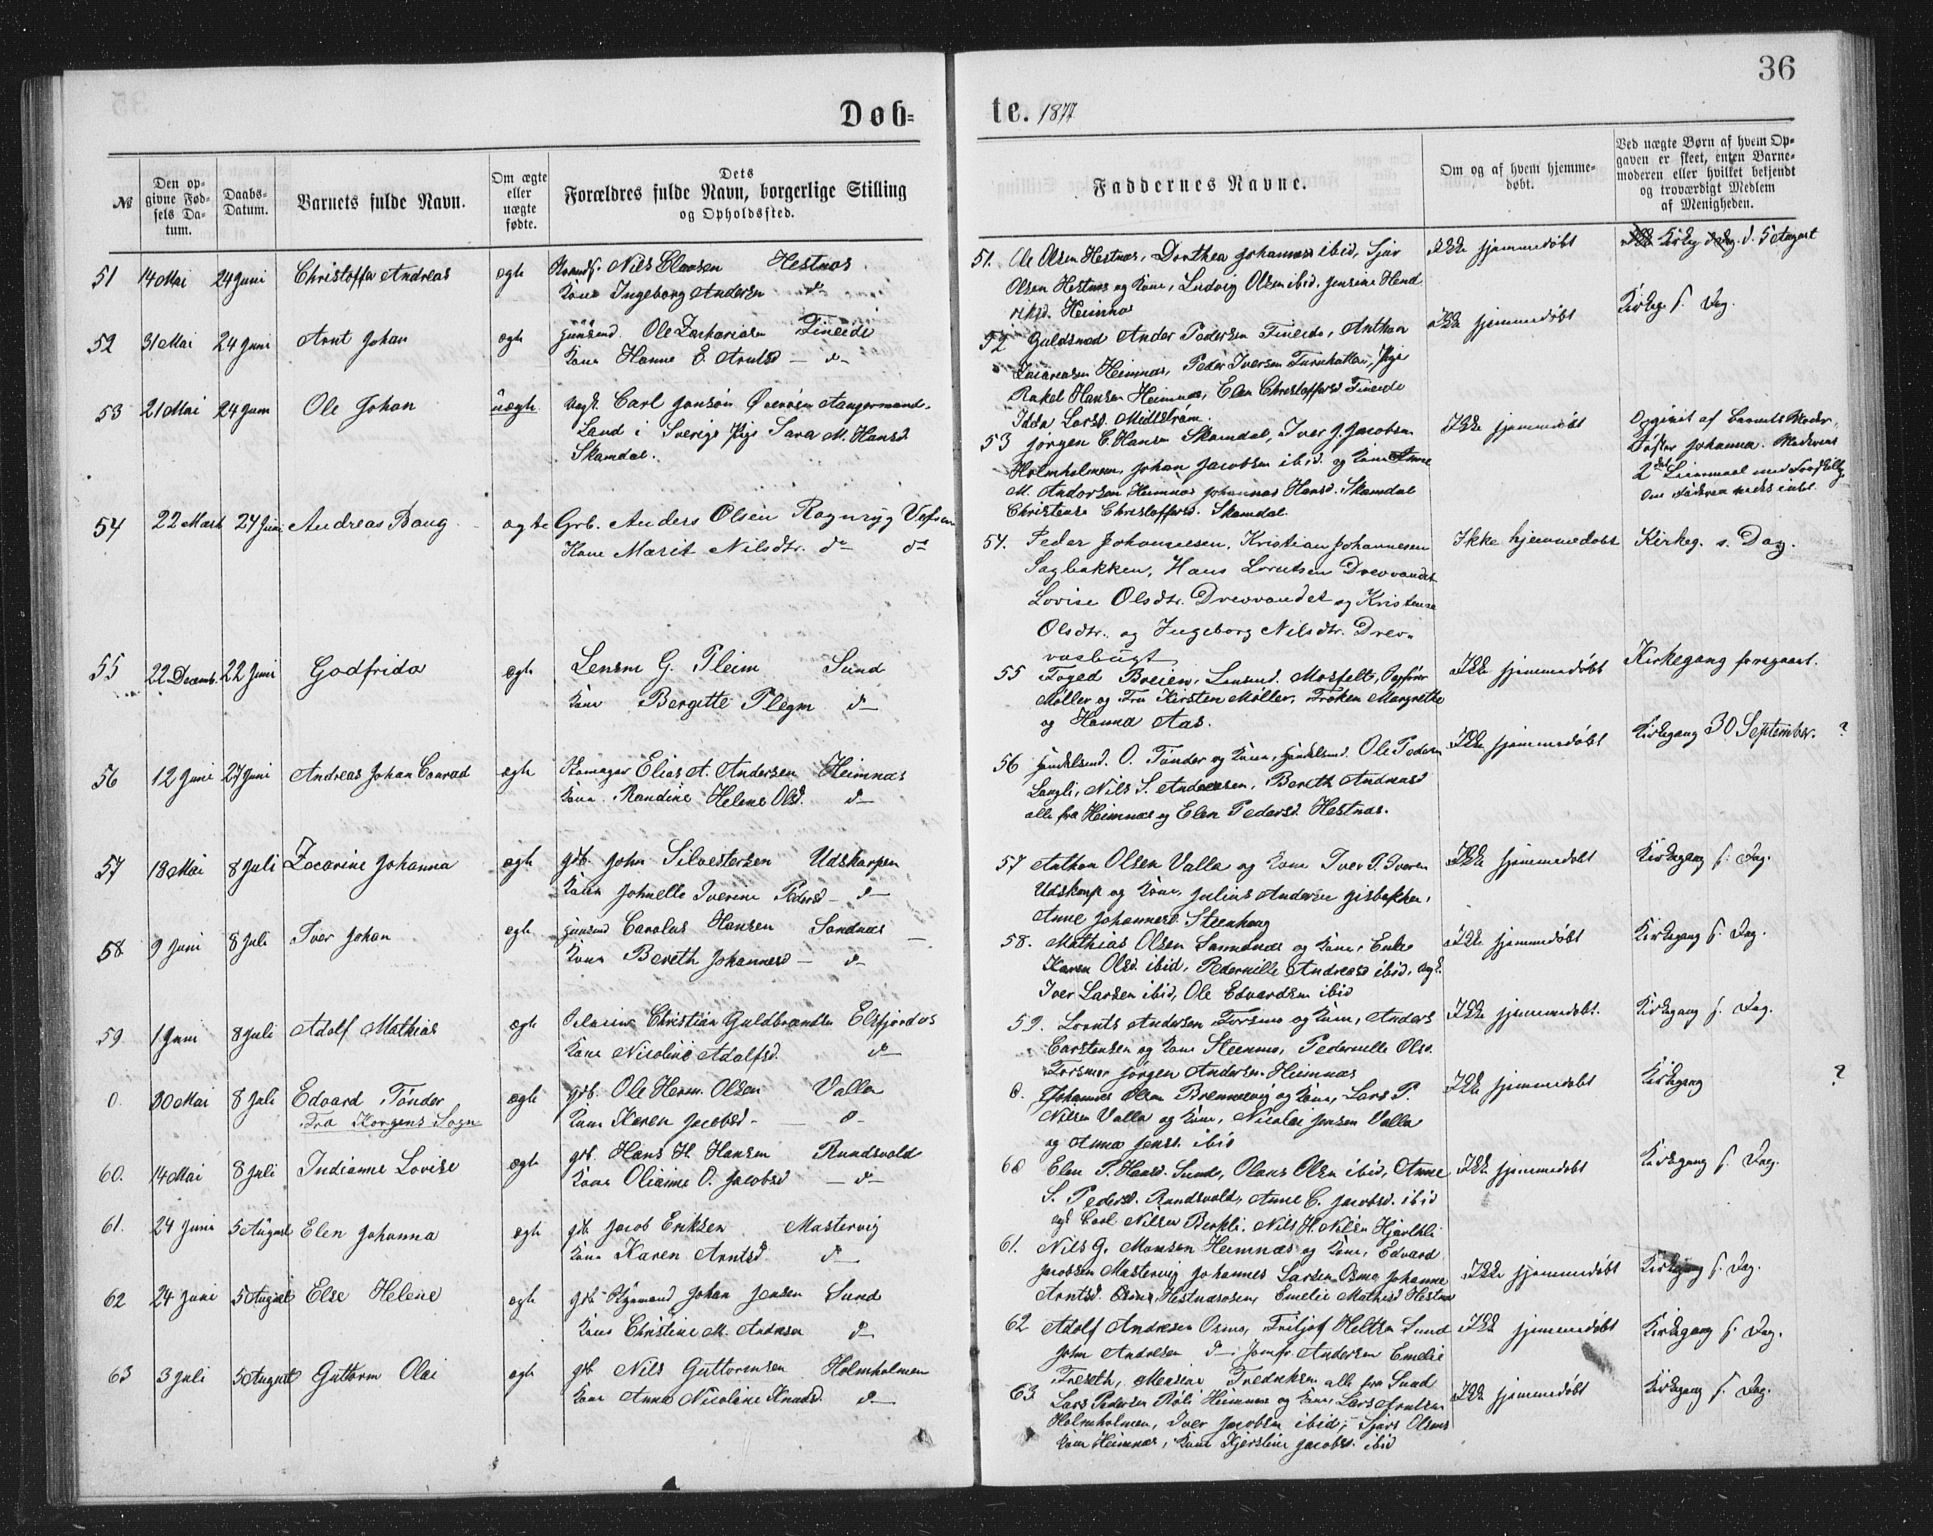 36
Døb=
te. 1877
№
Den opgivne Fødsels Datum.
Daabs-Datum.
Barnets fulde Navn.
Om ægte eller uægte fødte.
Dets Forældres fulde Navn, borgerlige Stilling og Opholdssted.
Faddernes Navne.
Om og af hvem hjemmedøbt.
Ved uægte Børn af hvem Opgaven er skeet, enten Barnemoderen eller hvilket bekjendt og troværdigt Medlem af Menigheden.
51 14 Mai 24 Juni Christoffer Andreas ægte Nils Clausen Hestnæs
Kone Ingeborg Andersen d—
51. Ole Olsen Hestnæs, Dorthea Johannesd ibid, Sjur
Olsen Hestnæs og Kone, Ludvig Olsen ibid, Jensine Hend
riksd. Heimnæs
Ikke hjemmedøbt
Kirkeg. d. 5 August
52 31 Mai 24 Juni Arnt Johan ægte Ole Zachariasen Fineide
Kone Hanne E. Arntsd — d—
52 Anders Pedersen Fineide, Anthon
Zacariasen Heimnæs, Peder Iversen Pige
Rakel Hansen Heimnæs, Elen Christoffersd Fineide
Idda Larsd. Midtstrøm.
Ikke hjemmedøbt
Kirkeg f. Dag.
53 21 Mai 24 Juni Ole Johan uægte Ungk. Carl Angermand-
Land i Sverige Pige Sara M. Hansd.
Skamdal.
53 Jørgen C. Hansen Skamdal, Iver J. Jacobsen
Holmholmen, Johan Jacobsen ibid. og Kone Anne
M. Andersen Heimnæs Johannes Hansd. Skamdal
Christense Christoffersd. Skamdal
Ikke hjemmedøbt
Opgivet af Barnets Moder,
Johanna. Moderens
2det Leiermaal med
om Faderen vides intet.
54 22 Marts 24 Juni Andreas Baug ægte Grb. Anders Olsen Vefsen
Kone Marit Nilsdtr. do do
54. Peder Johannesen, Kristian Johannesen
Sagbakken, Hans Lorntsen Drevvandet
Lovise Olsdtr. Drevvandet og Kristense
Olsdtr. og Ingeborg Nilsdtr. Drev-
vasbugt
Ikke hjemmedøbt
Kirkeg. s. Dag.
55 22 Decemb. 22 Juni Godfrida ægte Lensm G. Pleim Sund
Kone Bergitte Plegm d—
55 Foged Breien, Lensmd. Mosfelt,
Møller og Fru Kirsten Møller, Frøken Margrethe
og Hanna Aas.
Ikke hjemmedøbt
Kirkegang foregaaet.
56 12 Juni 27 Juni Andreas Johan Conrad ægte Elias A. Andersen Heimnæs
Kone Randine Helene Olsd. d—
56 Handelsmd. O. Tønder og Kone, Handelsmd. Ole Pedersen
Langli, Nils S. Andersen, Bereth Andreasd
alle fra Heimnæs og Elen Pedersd. Hestnæs.
Ikke hjemmedøbt
Kirkegang 30 September. ?
57 18 Mai 8 Juli Zacarine Johanna ægte grb. John Silvestersen Udskarpen
Kone Johnelle Iverine Pedersd — d—
57 Anthon Olsen Valla og Kone Iver P. Iversen
Udskarp og Kone, Julius Andersen
Anne Johannesd. Steenhaug
Ikke hjemmedøbt
Kirkegang f. Dag.
58 9 Juni 8 Juli Iver Johan ægte Carolus Hansen Sandnæs
Kone Bereth Johannesd — d—
58. Mathias Olsen Sandnæs og Kone, Enke
Karen Olsd. ibid, Pedernille Andreasd ibid,
Iver Larsen ibid, Ole Edvardsen ibid
Ikke hjemmedøbt
Kirkegang f. Dag.
59 1 Juni 8 Juli Adolf Mathias ægte Christian Guldbrandsen Elsfjordos
Kone Nicoline Adolfsd. d—
59. Lornts Andersen Forsmo og Kone, Anders
Carstensen og Kone Steenmo, Pedernille Olsd.
Forsmo Jørgen Andersen Heimnæs
Ikke hjemmedøbt.
Kirkegang f. Dag.
0. 30 Mai 8 Juli Edvard Tønder ægte grb. Ole Herm. Olsen Valla
Fra Korgens Sogn Kone Karen Jacobsd. — d—
0. Johannes Olsen og Kone, Lars P.
Nilsen Valla og Kone, Nicolai Jensen Valla
og Anna Jensd. ibid
Ikke hjemmedøbt
Kirkegang ?
60. 14 Mai 8 Juli Indianne Lovise ægte grb. Hans H. Hansen Rundsvold
Kone Olianne O. Jacobsd — d—
60 Elen P. Hansd. Sund, Olaus Olsen ibid, Anne
S. Pedersd. Rundsvold, Anne C. Jacobsd. ibid
Carl Nilsen Nils H. Nilsen
Ikke hjemmedøbt
Kirkegang f. Dag.
61. 24 Juni 5 August Elen Johanna ægte grb. Jacob Eriksen Mastervig
Kone Karen Arntsd. d—
61. Nils G. Monsen Heimnæs og Kone, Edvard
Jacobsen Mastervig Johannes Larsen Osmo Johanne
Arntsd. Hestnæsosen, Emelie Mathisd Hestnæs
Ikke hjemmedøbt
Kirkegang f. Dag.
62 24 Juni 5 August Else Helene ægte grb. Johan Jensen Sund
Kone Christine M. Andersen d—
62 Adolf Andersen Osmo, Fritjof Heltzen Sund
John Andersen d— Jomfr. Andersen Emelie
Treseth, Mensine Fredriksen alle fra Sund
Ikke hjemmedøbt
Kirkegang f. Dag.
63 3 Juli 5 August Guttorm Olai ægte grb. Nils Guttormsen Holmholmen
Kone Anne Nicoline Knudsd. d—
63 Lars Pedersen Røli Heimnæs og Kone, Lars Arntsen
Holmholmen, Iver Jacobsen ibid, Sjurs Olsens
Kone Heimnæs, Kone Kjerstine Jacobsd. ibid
Ikke hjemmedøbt
Kirkegang f. Dag.